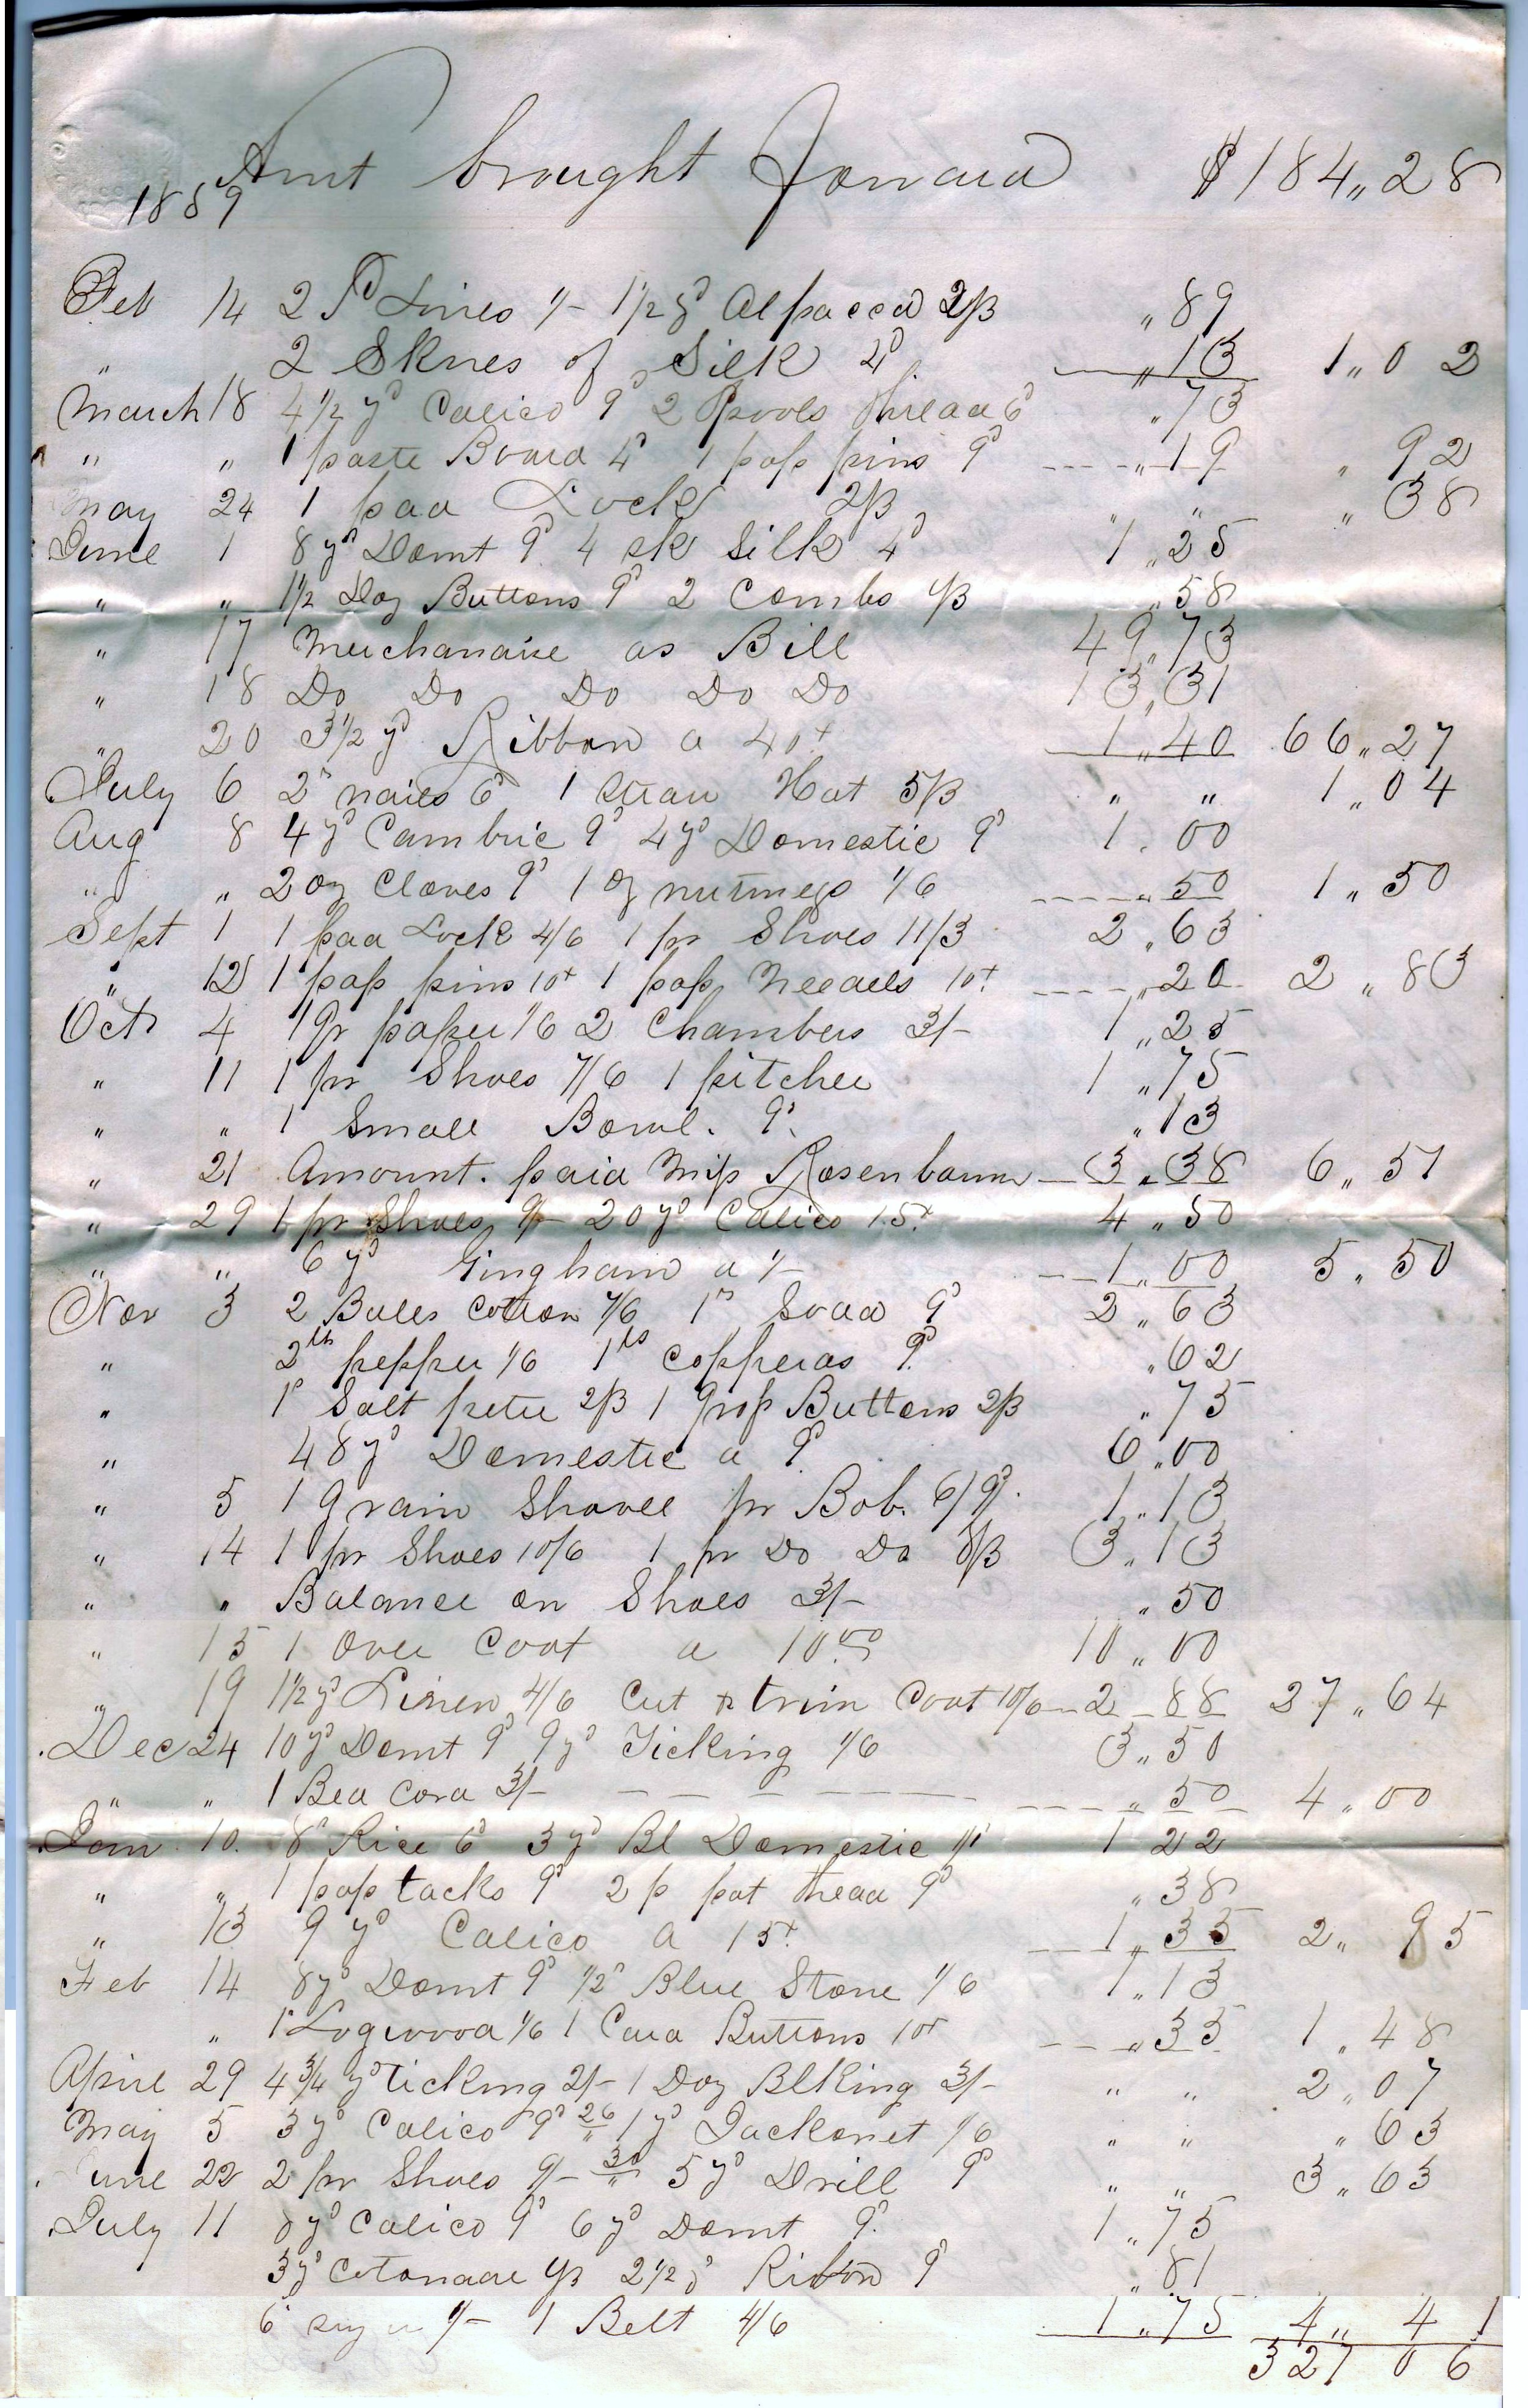 Amt brought Forward $184,,28
1859
Feb 14 2 Pr Lines 1/- 1 1/2 yd Alpacca 2/3 ,,89
,, 2 Sknes of Silk 4d ,,13 1,,02
March 18 4 1/2 yd Calico 9d 2 Spools thread 6d ,,73
,, ,, 1 paste Board 4d 1 pap pins 9d ,,19 ,,92
May 24 1 pad Lock 2/3 ,, ,, ,,38
June 1 8 yd Domt 9d 4 sk Silk 4d 1,,25
,, ,, 1 1/2 Doz Buttons 9d 2 Combs 1/3 ,,58
,, 17 Merchandise as Bill 49,,73
,, 18 Do Do Do Do Do 13,,31
,, 20 3 1/2 yd Ribbon a 40+ 1,,40 66,,27
July 6 2lb nails 6d 1 Straw Hat 5/3 ,, ,, 1,,04
Aug 8 4 yd Cambric 9d 4 yd Domestic 9d 1,,00
,, ,, 2 oz Cloves 9d 1 oz nutmegs 1/6 ,,50 1,,50
Sept 1 1 pad Lock 4/6 1 pr Shoes 11/3 2,,63
,, 12 1 pap pins 10+ 1 pap Needles 10+ ,,20 2,,83
Oct 4 1 Qr paper 1/6 2 Chambers 3/- 1,,25
,, 11 1 pr Shoes 7/6 1 pitcher 1,,75
,, ,, 1 Small Bowl. 9d ,,13
,, 21 Amount. paid Miss Rosenbaum 3,,38 6,,51
,, 29 1 pr Shoes 9/- 20 yd Calico 15+ 4,,50
,, ,, 6 yd Gingham a 1/- 1,,00 5,,50
Nov 3 2 Bales Cotton 7/6 1lb Soda 9d 2,,63
,, 2lb pepper 1/6 1lb Copperas 9d ,,62
,, 1lb Salt petre 2/3 1 Gross Buttons 2/3 ,,75
,, 48 yd Domestic a 9d 6,,00
,, 5 1 Grain Shovel pr Bob. 6/9. 1,,13
,, 14 1 pr Shoes 10/6 1 pr Do Do 8/3 3,,13
,, ,, Balance on Shoes 3/- ,,50
,, 15 1 Over Coat a 10.00 10,,00
,, 19 1 1/2 yd Linen 4/6 Cut & trim Coat 10/6 2 88 27,,64
Dec 24 10 yd Domt 9d 9 yd Ticking 1/6 3,,50
,, ,, 1 Bed Cord 3/- ,,50 4,,00
Jan 10. 8lb Rice 6d 3 yd Bl Domestic 1 22
,, ,, 1 pap tacks 9d 2 p pat thread 9d ,,38
,, 13 9 yd Calico a 15+ 1,,35 2,,95
Feb 14 8 yd Domt 9d 1/2lb Blue Stone 1/6 1,,13
,, 1lb Logwood 1/6 1 Card Buttons 10+ ,,35 1,,48
April 29 4 3/4 yd Ticking 2/- 1 Doz Blking 3/- ,, ,, 2,,07
May 5 3 yd Calico 9d 26 1 yd Jackonet 1/6 ,, ,, ,,63
June 22 2 pr Shoes 9/- 30 5 yd Drill 9d ,, ,, 3,,63
July 11 8 yd Calico 9d 6 yd Domt 9d 1,,75
3 yd Cotonade 1/3 2 1/2 yd Ribbon 9d ,,81
6lb 1/- 1 Belt 4/6 1,,75 4,,41
327 06